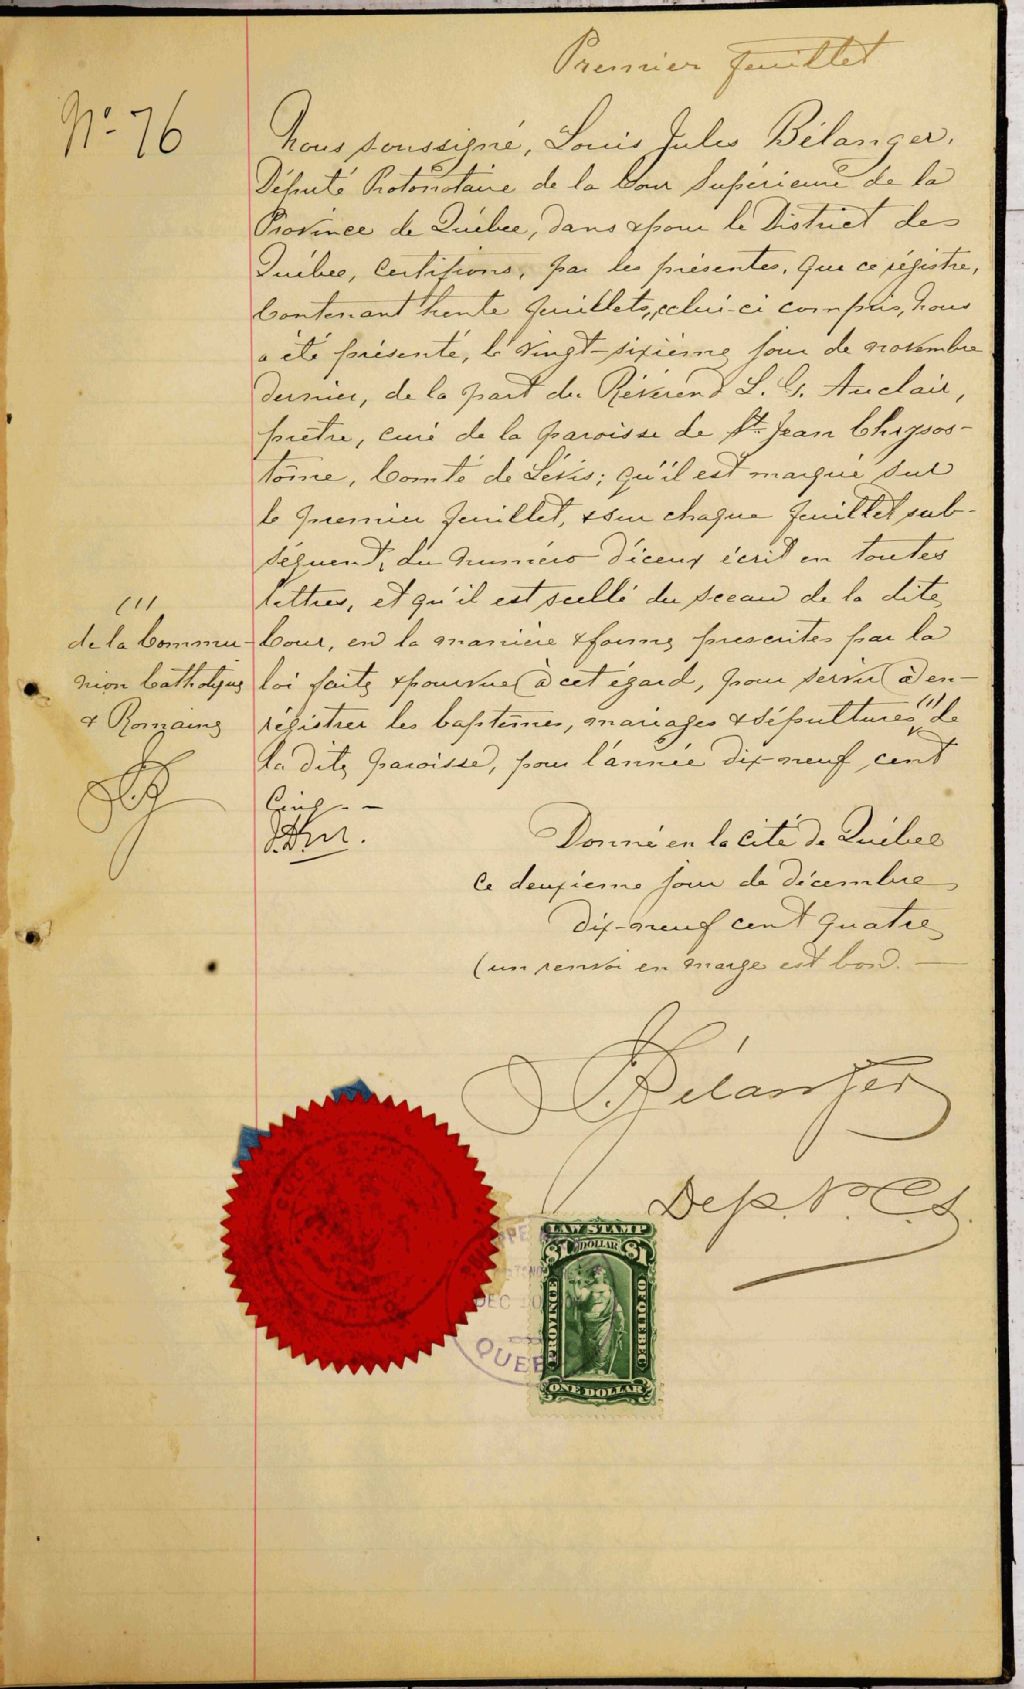 Premier feuillet
No- 76
Nous soussigné, Louis Jules Bélanger,
Député Protonotaire de la Cour Supérieure de la
Province de Québec, dans & pour le District de
Québec, certifions, par les présentes, que ce régistre,
contenant trente feuillets, celui-ci compris, nous
a été présenté, le vingt-sixième jour de novembre
dernier, de la part du Révérend L. G. Auclair,
prêtre, curé de la paroisse de St. Jean Chrysos-
tôme, Comté de Lévis; qu'il est marqué sur
le premier feuillet, & sur chaque feuillet sub-
séquent, du numéro d'iceux écrit en toutes
lettres, et qu'il est scellé du sceau de la dite
Cour, en la manière & forme prescrites par la
loi faite & pourvue à cet égard, pour servir à en-
régistrer les baptêmes, mariages & sépultures (1) de
la dite paroisse, pour l'année dix-neuf cent
Cinq - -
(1)
de la Commu-
nion Catholique
& Romaine
Donné en la cité de Québec
ce deuxième jour de décembre
dix-neuf cent quatre
(un renvoi en marge est bon. —
Bélanger
Dep. P. C. S.
LAW STAMP
$1 DOLLAR $1
PROVINCE OF QUEBEC
ONE DOLLAR
DEC 10
QUEBEC